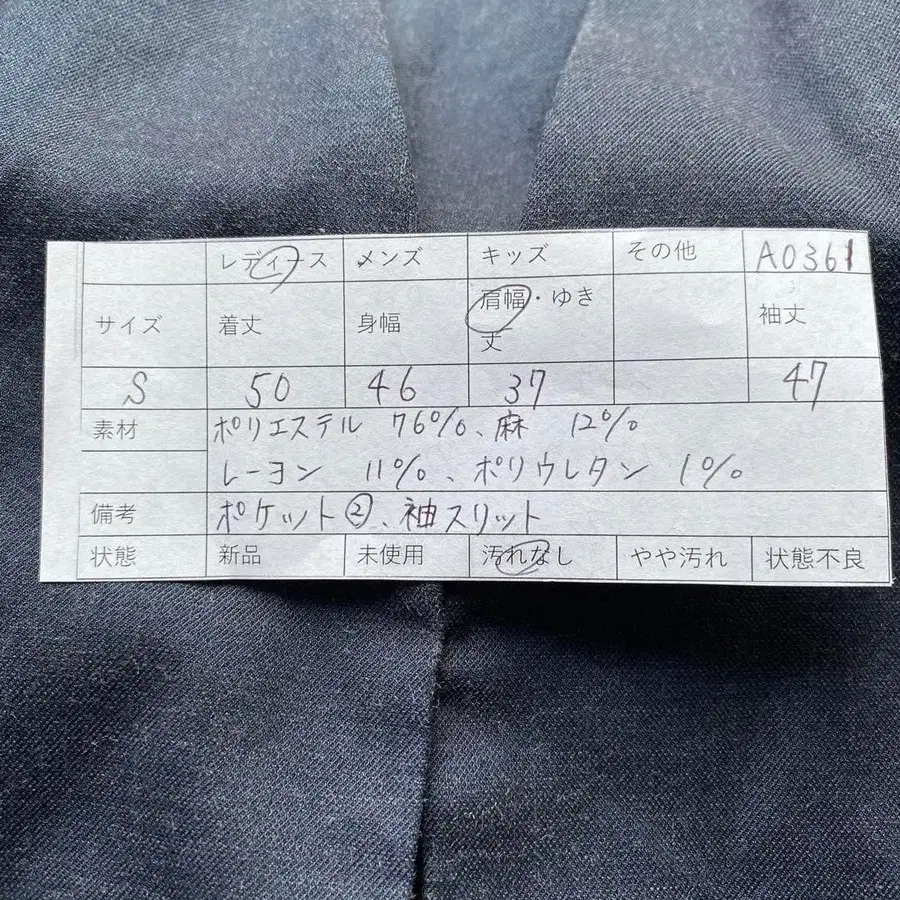 レディース メンズ キッズ その他 A0361
サイズ 着丈 身幅 肩幅・ゆき丈 袖丈
S 50 46 37 47
素材 ポリエステル 76%、麻 12%
レーヨン 11%、ポリウレタン 1%
備考 ポケット②、袖スリット
状態 新品 未使用 汚れなし やや汚れ 状態不良